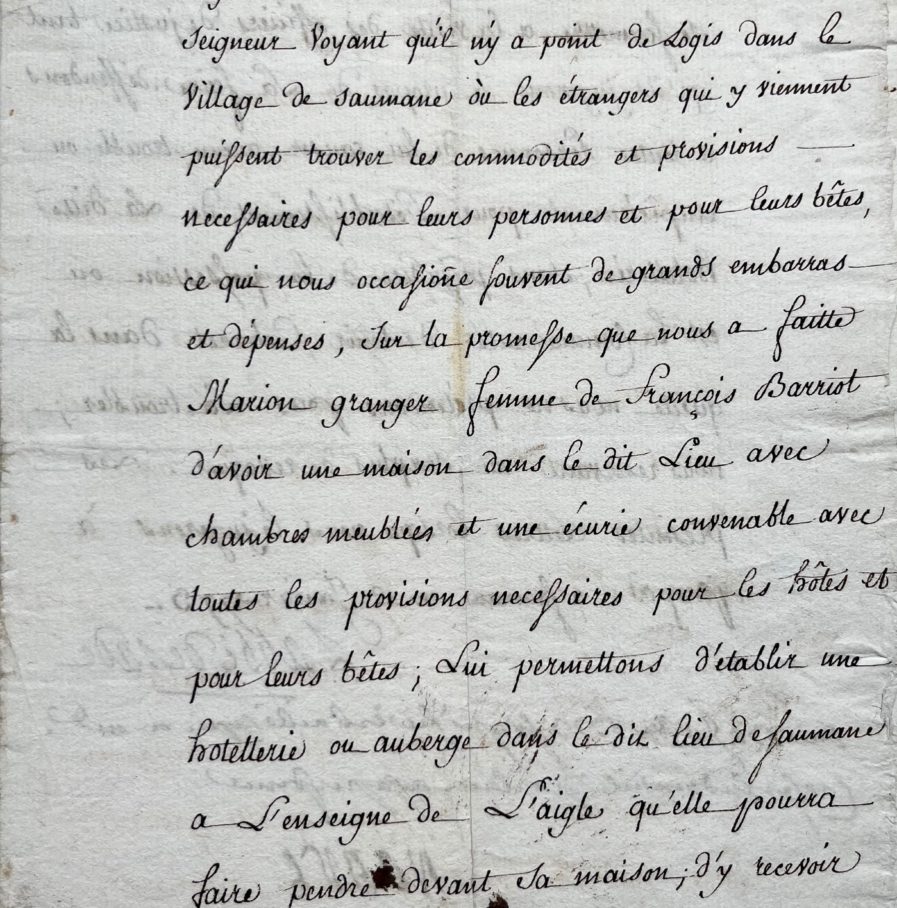 Seigneur Voyant qu'il n'y a point de Logis dans le
Village de Saumane où les étrangers qui y viennent
puissent trouver les commodités et provisions
necessaires pour leurs personnes et pour leurs bêtes,
ce qui nous occasioñe souvent de grands embarras
et dépenses, Sur la promesse que nous a faitte
Marion granger femme de François Barriot
d'avoir une maison dans le dit Lieu avec
chambres meubléés et une écurie convenable avec
toutes les provisions necessaires pour les hôtes et
pour leurs bêtes; Lui permettons d'établir une
hotellerie ou auberge dans le dit lieu de Saumane
a L'enseigne de L'aigle qu'elle pourra
faire pendre devant sa maison; d'y recevoir